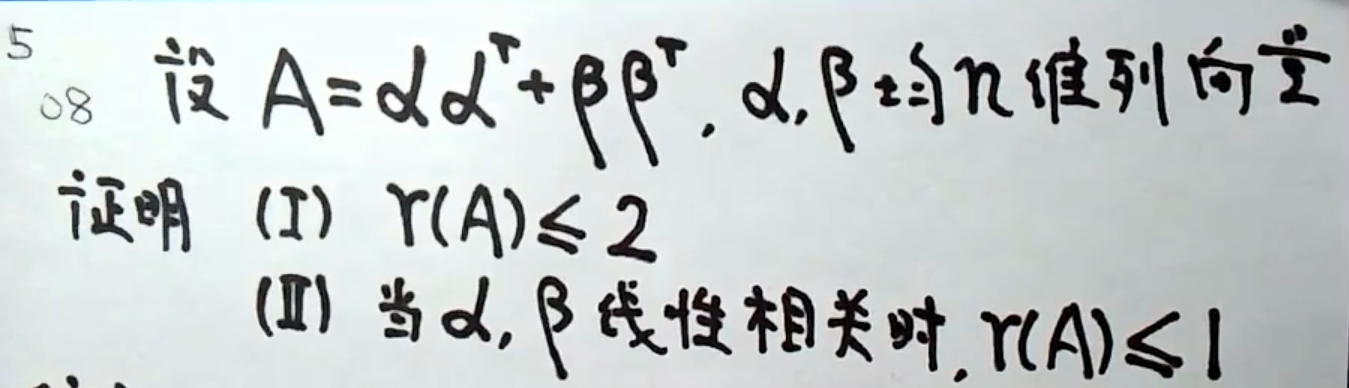 5
08 设 A=αα^T+ββ^T, α,β均n维列向量
证明 (I) r(A)≤2
(II) 当α,β线性相关时,r(A)≤1